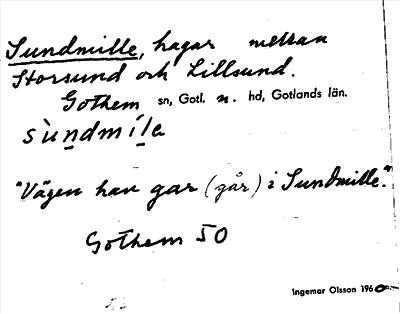 Sundmille, hagar mellan
Storsund och Lillsund.
Gothem sn, Gotl. n. hd, Gotlands län.
sùndmíle
"Vägen han gar (går) i Sundmille."
Gothem 50
Ingemar Olsson 1960